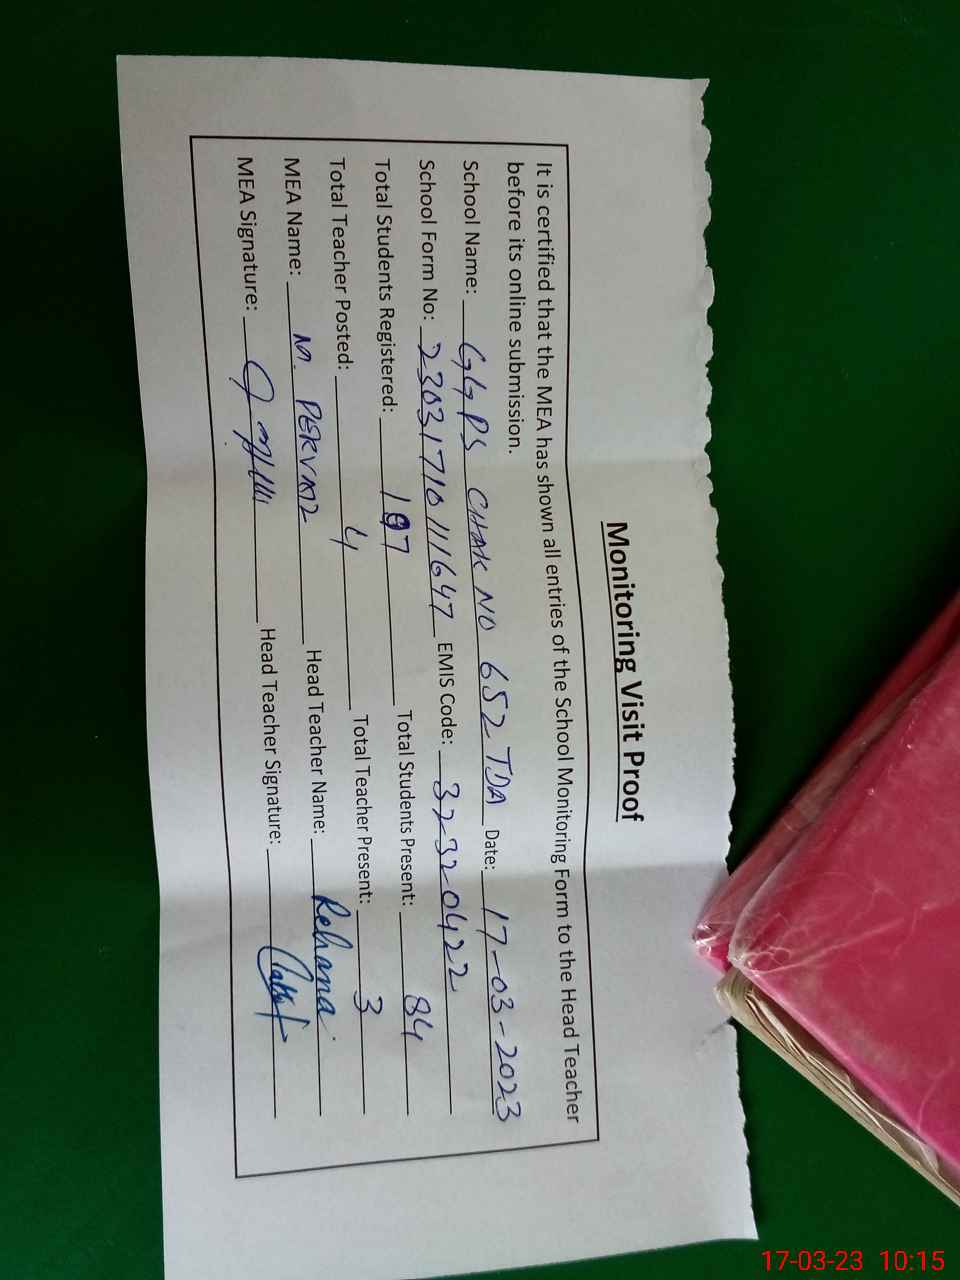 Monitoring Visit Proof
It is certified that the MEA has shown all entries of the School Monitoring Form to the Head Teacher
before its online submission.
School Name: GGPS CHAK NO 652 TDA Date: 17-03-2023
School Form No: 23031710111647 EMIS Code: 32320422
Total Students Registered: 197 Total Students Present: 84
Total Teacher Posted: 4 Total Teacher Present: 3
MEA Name: M. PERVAIZ Head Teacher Name: Rehana
MEA Signature: Head Teacher Signature:
17-03-23 10:15